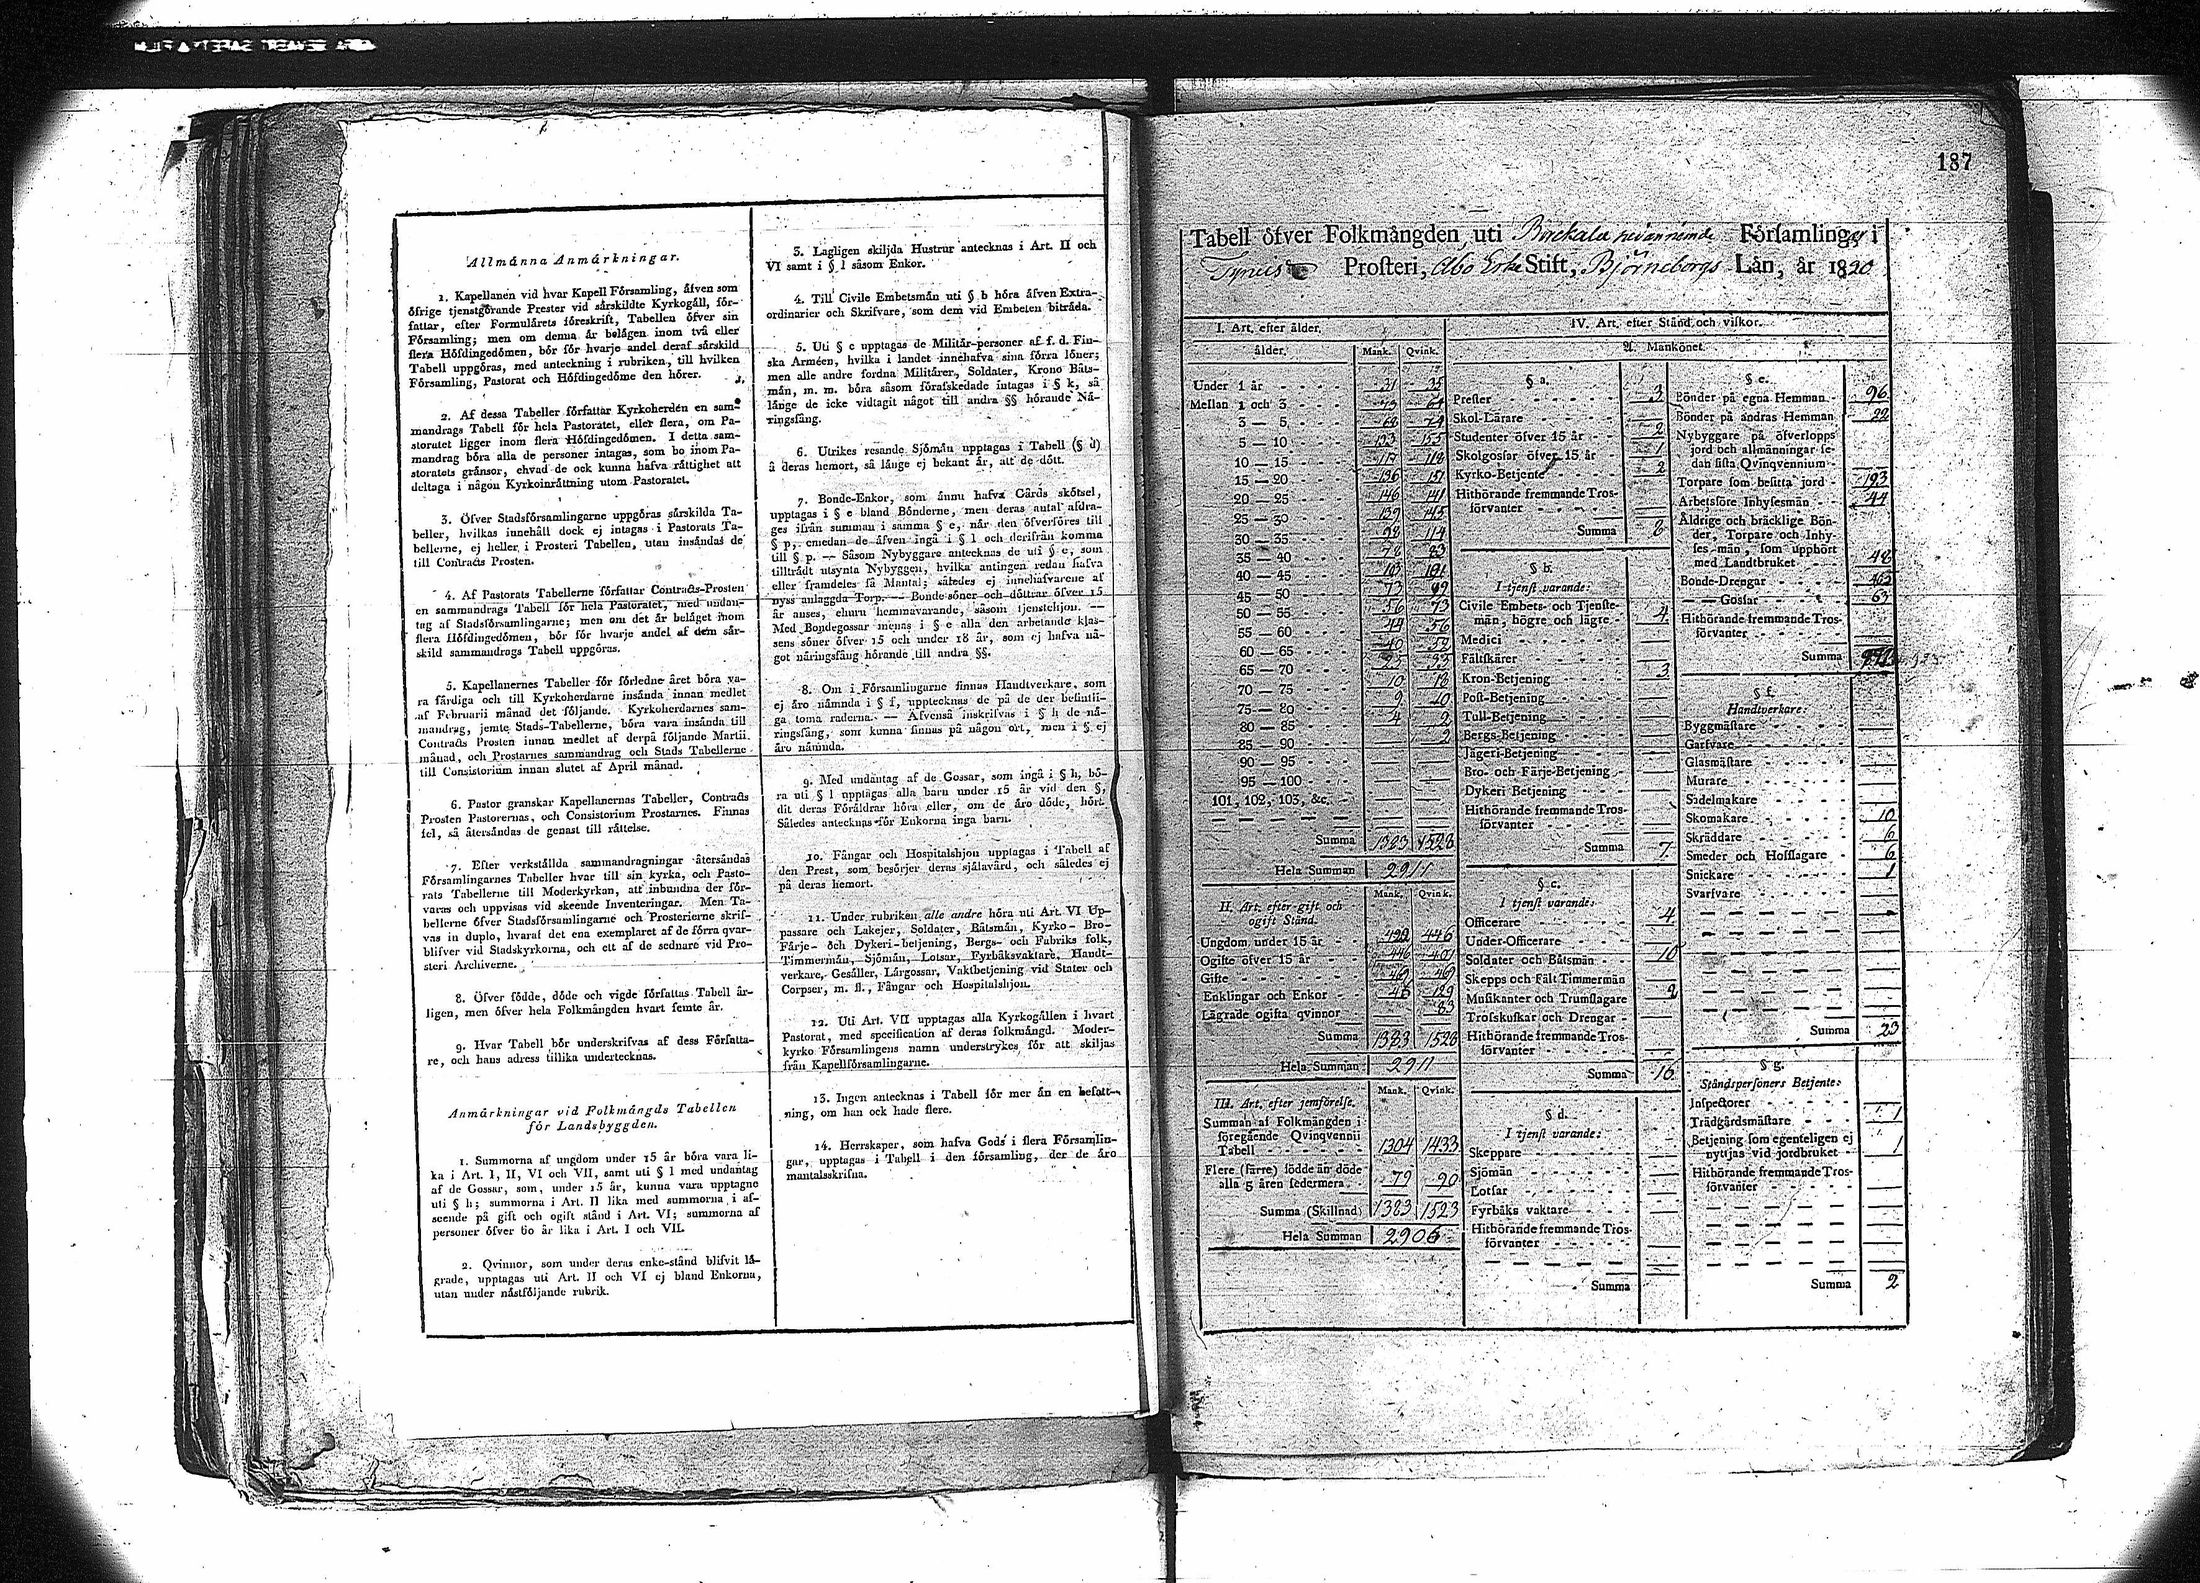 Allmánna Anmárkningar.
1. Kapellanen vid hvar Kapell Fórsamling, áfven som
ófrige tjenstgórande Prester vid sárskildte Kyrkogáll, fór-
fattar, efter Formulárets fóreskrift, Tabellen ófver sin
Fórsamling; men om denna ár belágen inom tvá eller
flera Hófdingedómen, bór fór hvarje andel deraf sárskild
Tabell uppgóras, med anteckning i rubriken, till hvilken
Fórsamling, Pastorat och Hófdingedóme den hórer.
2. Af dessa Tabeller fórfattar Kyrkoherden en sam-
mandrags Tabell fór hela Pastoratet, eller flera, om Pa-
storatet ligger inom flera Hófdingedómen. I detta sam-
mandrag bóra alla de personer intagas, som bo inom Pa-
storatets gránsor, ehvad de ock kunna hafva ráttighet att
deltaga i nágon Kyrkoinráttning utom Pastoratet.
3. Ófver Stadsfórsamlingarne uppgóras sárskilda Ta-
beller, hvilkas innehåll dock ej intages i Pastorats Ta-
bellerne, ej heller i Prosteri Tabellen, utan insándas de
till Contracts Prosten.
4. Af Pastorats Tabellerne fórfattar Contracts-Prosten
en sammandrags Tabell fór hela Pastoratet, med undan-
tag af Stadsfórsamlingarne; men om det ár beláget inom
flera Hófdingedómen, bór fór hvarje andel af dem sár-
skild sammandrags Tabell uppgóras.
5. Kapellanernes Tabeller fór fórledne året bóra va-
ra fárdiga och till Kyrkoherdarne insánda innan medlet
af Februarii månad det fóljande. Kyrkoherdarnes sam-
mandrag, jemte Stads-Tabellerne, bóra vara insánda till
Contracts Prosten innan medlet af derpå fóljande Martii
månad, och Prostarnes sammandrag och Stads Tabellerne
till Consistorium innan slutet af April månad.
6. Pastor granskar Kapellanernas Tabeller, Contracts
Prosten Pastorernas, och Consistorium Prostarnes. Finnas
fel, så återsándas de genast till ráttelse.
7. Efter verkstállda sammandragningar återsándas
Fórsamlingarnes Tabeller hvar till sin kyrka, och Pasto-
rats Tabellerne till Moderkyrkan, att inbundna der fór-
varas och uppvisas vid skeende Inventeringar. Men Ta-
bellerne ófver Stadsfórsamlingarne och Prosterierne skrif-
vas in duplo, hvaraf det ena exemplaret af de fórra qvar-
blifver vid Stadskyrkorna, och ett af de sednare vid Pro-
steri Archiverne.
8. Ófver fódde, dóde och vigde fórfattas Tabell år-
ligen, men ófver hela Folkmángden hvart femte år.
9. Hvar Tabell bór underskrifvas af dess Fórfatta-
re, och hans adress tillika undertecknas.
Anmárkningar vid Folkmángds Tabellen
fór Landsbyggden.
1. Summorna af ungdom under 15 år bóra vara li-
ka i Art. I, II, VI och VII, samt uti § l med undantag
af de Gossar, som, under 15 år, kunna vara upptagne
uti § h; summorna i Art. II lika med summorna i af-
seende på gift och ogift stånd i Art. VI; summorna af
personer ófver 60 år lika i Art. I och VII.
2. Qvinnor, som under deras enke-stånd blifvit lá-
grade, upptagas uti Art. II och VI ej bland Enkorna,
utan under nástfóljande rubrik.
3. Lagligen skiljda Hustrur antecknas i Art. II och
VI samt i § l såsom Enkor.
4. Till Civile Embetsmán uti § b hóra áfven Extra-
ordinarier och Skrifvare, som dem vid Embeten bitráda.
5. Uti § c upptagas de Militár-personer af f. d. Fin-
ska Arméen, hvilka i landet innehafva sina fórra lóner;
men alle andre fordna Militárer, Soldater, Krono Båts-
mán, m. m. bóra såsom fórafskedade intagas i § k, så
lánge de icke vidtagit något till andra §§ hórande Ná-
ringsfång.
6. Utrikes resande Sjómán upptagas i Tabell (§ d)
å deras hemort, så lánge ej bekant ár, att de dótt.
7. Bonde-Enkor, som ánnu hafva Gårds skótsel,
upptagas i § e bland Bónderne, men deras antal afdra-
ges ifrån summan i samma § e, når den ófverfóres till
§ p, emedan de áfven ingå i § l och derifrån komma
till § p. — Såsom Nybyggare antecknas de uti § e, som
tilltrádt utsynta Nybyggen, hvilka antingen redan hafva
eller framdeles få Mantal; således ej innehafvarene af
nyss anlaggda Torp. — Bonde-sóner och dóttrar ófver 15
år anses, ehuru hemmavarande, såsom tjenstehjon. —
Med Bondegossar menas i § e alla den arbetande klas-
sens sóner ófver 15 och under 18 år, som ej hafva nå-
got náringsfång hórande till andra §§.
8. Om i Fórsamlingarne finnas Handtverkare, som
ej áro námnda i § f, upptecknas de på de der befintli-
ga toma raderna. — Áfvenså inskrifvas i § h de ná-
ringsfång, som kunna finnas på någon ort, men i § ej
áro námnda.
9. Med undantag af de Gossar, som ingå i § h, bó-
ra uti § l upptagas alla barn under 15 år vid den §,
dit deras Fóráldrar hóra eller, om de áro dóde, hórt.
Således antecknas fór Enkorna inga barn.
10. Fångar och Hospitalshjon upptagas i Tabell af
den Prest, som besórjer deras sjálavård, och således ej
på deras hemort.
11. Under rubriken alle andre hóra uti Art. VI Up-
passare och Lakejer, Soldater, Båtsmán, Kyrko- Bro-
Fárje- och Dykeri-betjening, Bergs- och Fabriks folk,
Timmermán, Sjómán, Lotsar, Fyrbåksvaktare, Handt-
verkare, Gesáller, Lárgossar, Vaktbetjening vid Stater och
Corpser, m. fl., Fångar och Hospitalshjon.
12. Uti Art. VII upptagas alla Kyrkogállen i hvart
Pastorat, med specification af deras folkmångd. Moder-
kyrko Fórsamlingens namn understrykes fór att skiljas
från Kapellfórsamlingarne.
13. Ingen antecknas i Tabell fór mer án en befatt-
ning, om han ock hade flere.
14. Herrskaper, som hafva Gods i flera Fórsamlin-
gar, upptagas i Tabell i den fórsamling, der de áro
mantalsskrifna.
187
Tabell ófver Folkmångden uti Fórsamlingar i
Prosteri, Abo Erke Stift, Björneborgs Lån, år 1820
I. Art. efter ålder.
ålder. Mank. Qvink.
Under 1 år 31 35
Mellan 1 och 3 73 64
3 — 5 68 74
5 — 10 155
10 — 15 118
15 — 20 136 151
20 — 25 146 141
25 — 30 139 145
30 — 35 98 114
35 — 40 78 83
40 — 45 103 101
45 — 50 73 99
50 — 55 56 73
55 — 60 44 56
60 — 65 40 52
65 — 70 25 33
70 — 75 10 18
75 — 80 9 10
80 — 85 4 2
85 — 90 2
90 — 95
95 — 100
101, 102, 103, &c.
Summa 1383 1528
Hela Summan 2911
II. Art. efter gift och
ogift Stånd. Mank. Qvink.
Ungdom under 15 år 422 446
Ogifte ófver 15 år 446 401
Gifte 469 469
Enklingar och Enkor 46 129
Lágrade ogifta qvinnor 83
Summa 1383 1528
Hela Summan 2911
III. Art. efter jemfórelse. Mank. Qvink.
Summan af Folkmángden i
fóregående Qvinqvennii
Tabell 1304 1433
Flere (fárre) fódde än dóde
alla 5 åren sedermera 79 90
Summa (Skillnad) 1383 1523
Hela Summan 2906
IV. Art. efter Stånd och vilkor.
A. Mankónet.
§ a.
Prester 3
Skol-Lárare
Studenter ófver 15 år 2
Skolgossar ófver 15 år 1
Kyrko-Betjente 2
Hithórande fremmande Tros-
fórvanter
Summa 8
§ b.
I tjenst varande:
Civile Embets- och Tjenste-
mán, högre och lägre 4
Medici
Fáltskärer
Kron-Betjening 3
Post-Betjening
Tull-Betjening
Bergs-Betjening
Jågeri-Betjening
Bro- och Färje-Betjening
Dykeri Betjening
Hithörande fremmande Tros-
förvanter
Summa 7
§ c.
I tjenst varande:
Officerare 4
Under-Officerare
Soldater och Båtsmän 10
Skepps och Fält Timmermän
Musikanter och Trumslagare 2
Trosskuskar och Drengar
Hithörande fremmande Tros-
förvanter
Summa 16
§ d.
I tjenst varande:
Skeppare
Sjömän
Lotsar
Fyrbåks vaktare
Hithörande fremmande Tros-
förvanter
Summa
§ e.
Bönder på egna Hemman 96
Bönder på andras Hemman 22
Nybyggare på öfverlopps
jord och allmänningar se-
dan sista Qvinqvennium
Torpare som besitta jord 193
Arbetsföre Inhysesmän 44
Åldrige och bräcklige Bön-
der, Torpare och Inhy-
ses-män, som upphört
med Landtbruket 48
Bonde-Drengar
— — Gossar 63
Hithörande fremmande Tros-
förvanter
Summa
§ f.
Handtverkare:
Byggmästare
Garfvare
Glasmästare
Murare
Sadelmakare
Skomakare 10
Skräddare 6
Smeder och Hofslagare 6
Snickare 1
Svarfvare
Summa 23
§ g.
Ståndspersoners Betjente:
Inspectorer 1
Trädgårdsmästare
Betjening som egenteligen ej
nyttjas vid jordbruket 1
Hithörande fremmande Tros-
förvanter
Summa 2